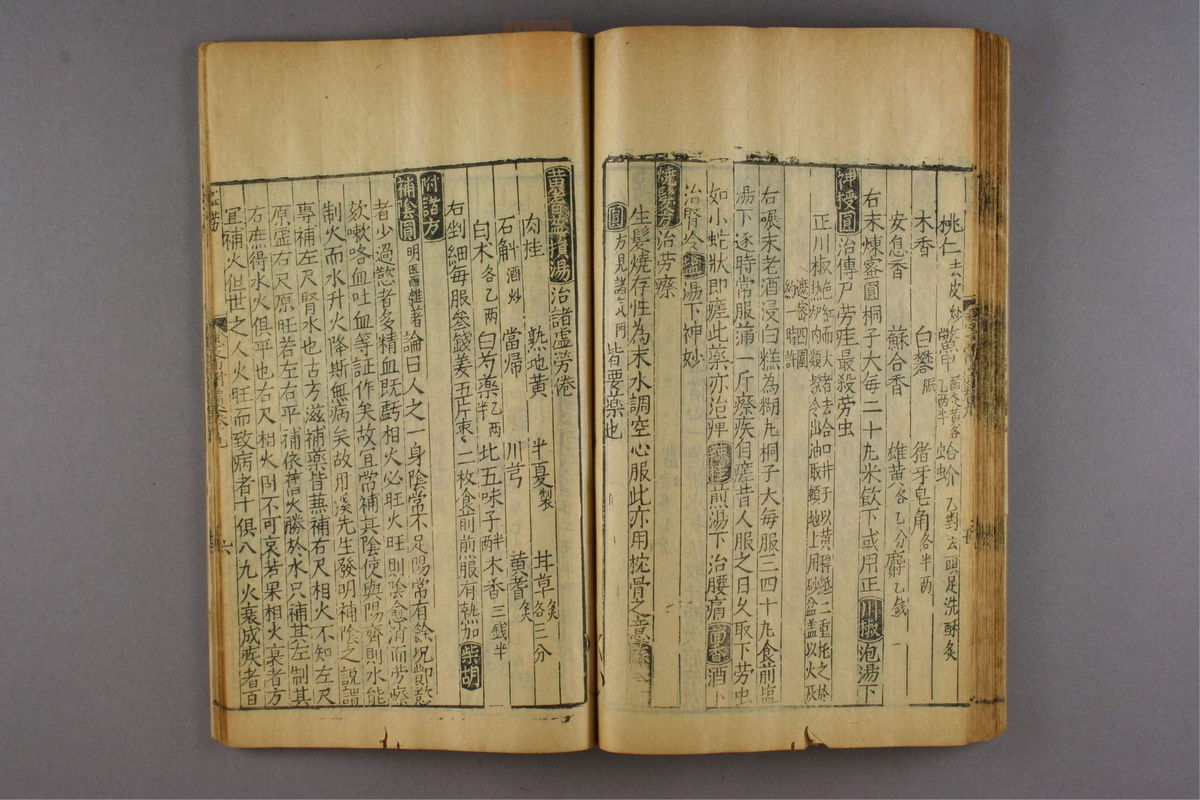 桃仁去皮炒 蛤蚧乙對去頭足洗酥炙
木香 白礬 猪牙皂角各半兩
安息香 蘇合香 雄黃各乙分 麝乙錢
右末煉蜜圓桐子大每二十丸米飲下或用正川椒泡湯下
神授圓治傳尸劳瘥最殺劳虫
正川椒色紅而大者去合口并子以黃
右碾末老酒浸白糕為糊丸桐子大每服三四十丸食前塩
湯下逐時常服蒲一斤瘵疾自瘥昔人服之日久取下劳虫
如小蛇狀即瘥此藥亦治痺煎湯下治腰痛茴香酒下
治腎冷塩湯下神妙
燒髮方治劳瘵
生髮燒存性為末水調空心服此亦用枕骨之意
圓方見諸气門 皆要藥也
黃耆益損湯治諸虛劳倦
肉桂 熟地黃 半夏製 甘草炙各三分
石斛酒炒 當歸 川芎 黃耆炙
白术各乙兩 白芍藥乙兩半 北五味子 木香三錢半
右剉細每服參錢姜五片枣二枚食前煎服有熱加柴胡
附諸方
補陰圓明医雜著論曰人之一身陰常不足陽常有餘況節慾
者少過慾者多精血既虧相火必旺火旺則陰愈消而劳瘵
欬嗽咯血吐血等証作矣故宜常補其陰使與陽齊則水能
制火而水升火降斯無病矣故用溪先生發明補陰之說謂
專補左尺腎水也古方滋補藥皆兼補右尺相火不知左尺
原虛右尺原旺若左右平補依舊火勝於水只補其左制其
右庶得水火俱平也右尺相火固不可衰若果相火衰者方
宜補火但世之人火旺而致病者十俱八九火衰成疾者百